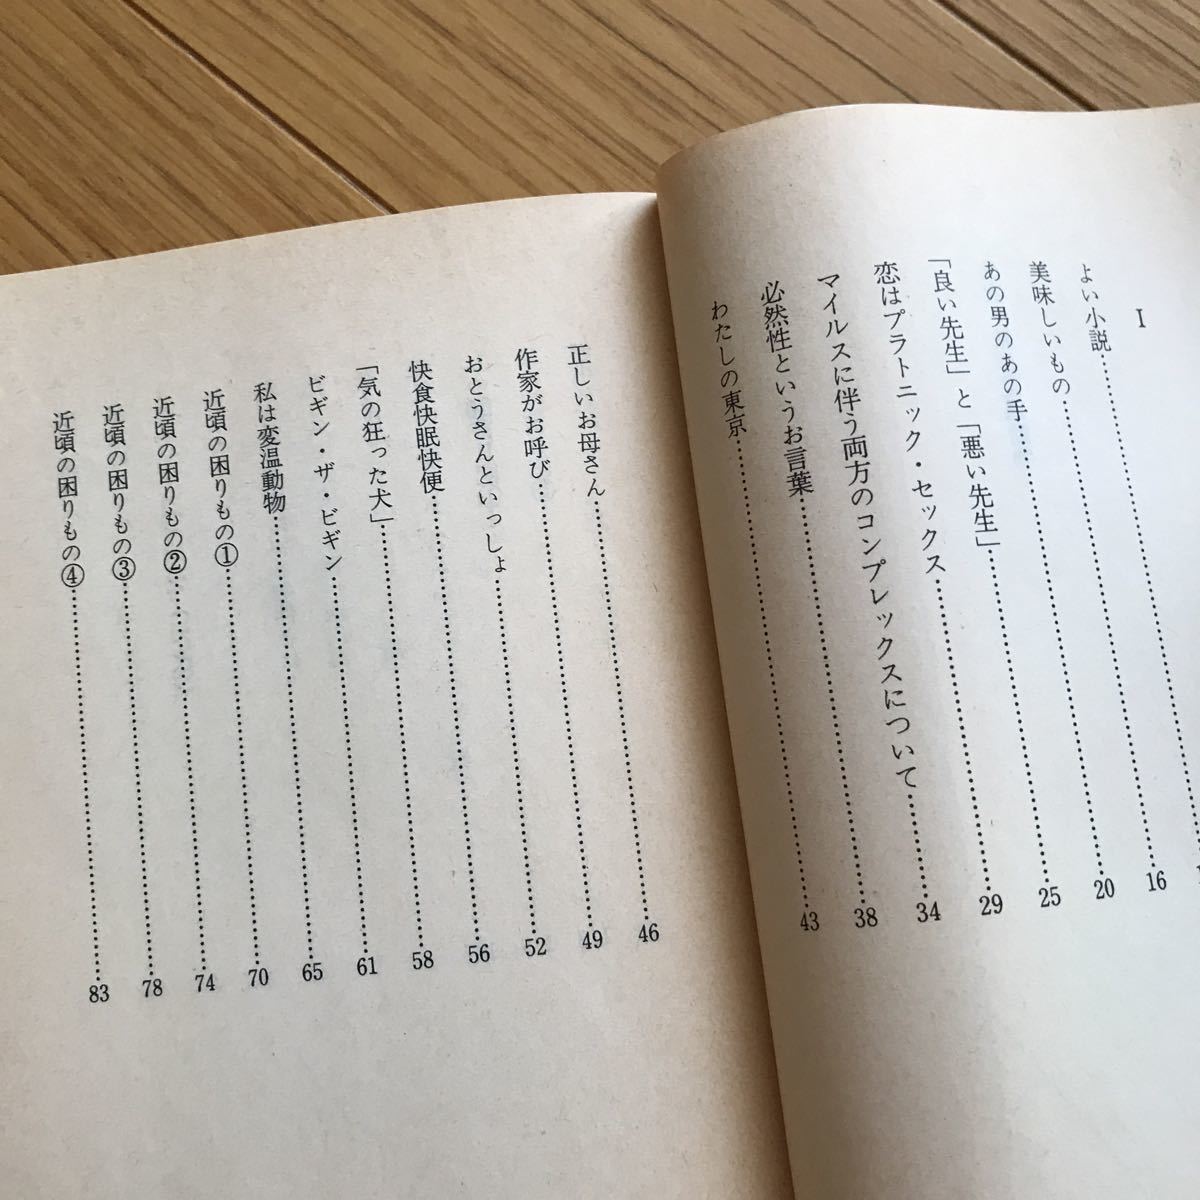 I
よい小説……
美味しいもの……16
あの男のあの手……20
「良い先生」と「悪い先生」……25
恋はプラトニック・セックス……29
マイルスに伴う両方のコンプレックスについて……34
必然性というお言葉……38
わたしの東京……43
正しいお母さん……46
作家がお呼び……49
おとうさんといっしょ……52
快食快眠快便……56
「気の狂った犬」……58
ビギン・ザ・ビギン……61
私は変温動物……65
近頃の困りもの①……70
近頃の困りもの②……74
近頃の困りもの③……78
近頃の困りもの④……83